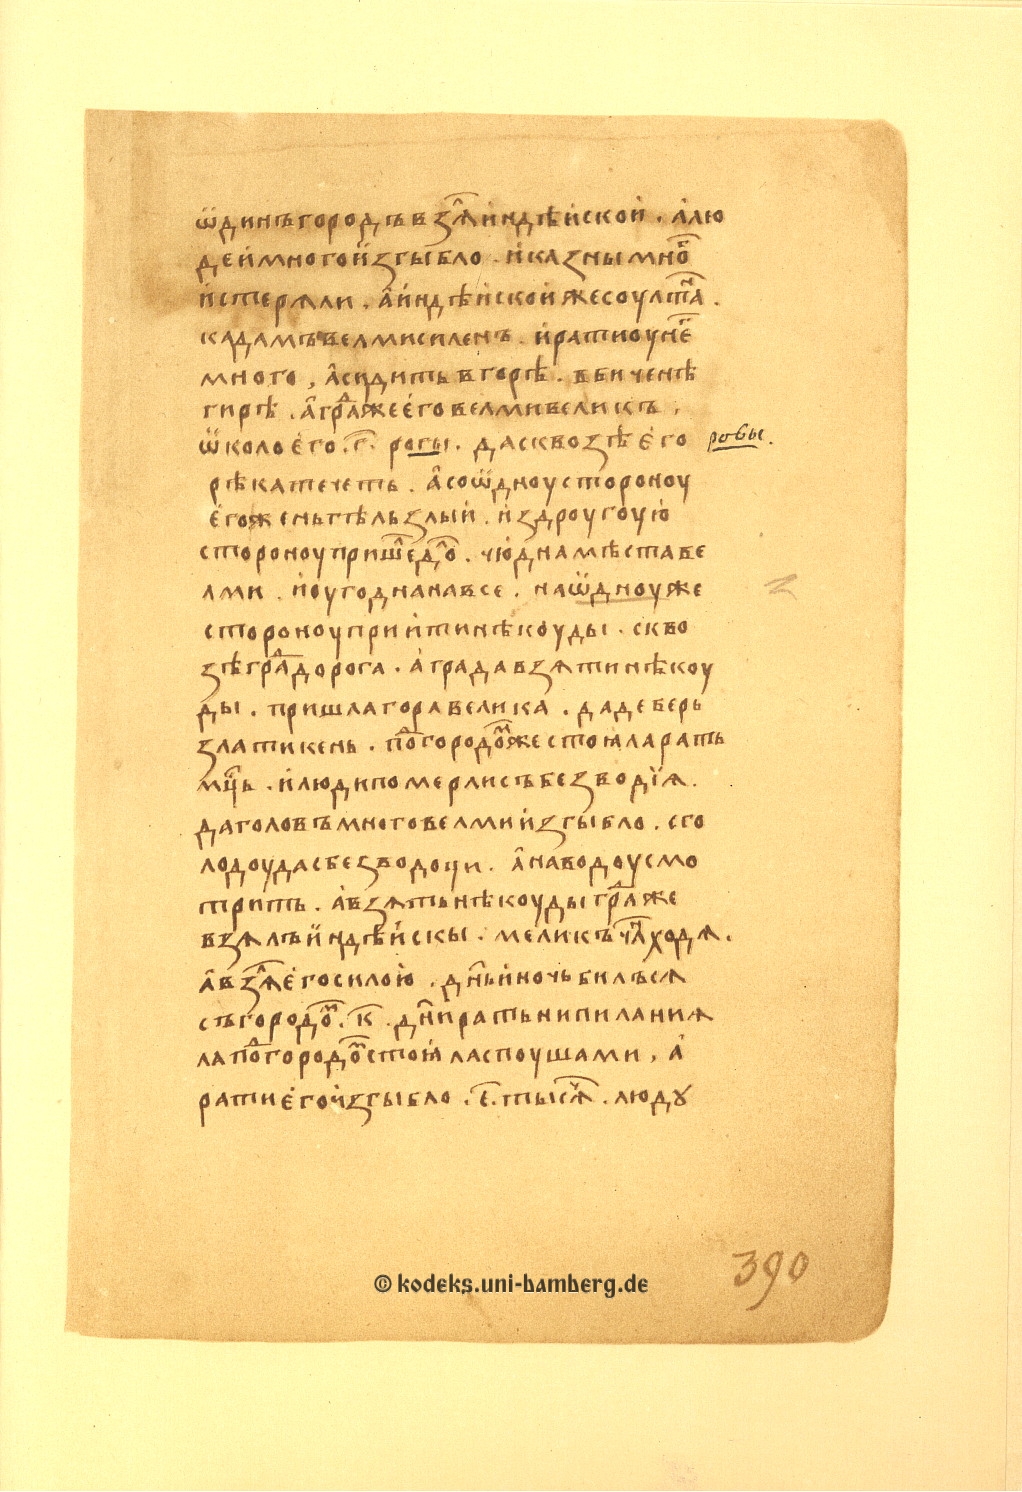 ѿдинъгородъвзѧ҆л и҆ндѣи҆скои҆ . а҆лю
деи҆многои҆згыбло . и҆казнымно҆г
и҆стерѧли . а҆и҆ндѣи҆скои҆жесоулта҆н .
кадамъвелмисиленъ . и҆ратиоуне҆г
много , а҆сидитьвгорѣ . вбиченѣ
гирѣ . а҆гра҆джее҆говелмивеликъ ,
ѡ҆колое҆го . г҃ . рогы . дасквозѣе҆го робы .
рѣкатечеть . а҆соѡ҆дноустороноу
е҆гоженьгѣльзлыи҆ . и҆здроугоую҆
стороноупришеде҆до҆ . чю҆днамѣставе
лми . и҆оугоднанавсе . наѡ҆дноуже
стороноуприи҆тинѣкоуды . скво
зѣгра҆ддорога . а҆градавзѧтинѣкоу
ды . пришлагоравелика . дадеберь
златикень . по҆дгородо҆мжестоꙗларать
мц҃ь . и҆людипомерлисъбезводїѧ .
даголовъмноговелмии҆згыбло . сго
лодоудасбезводоци . а҆наводоусмо
трить . а҆взѧтьнѣкоудыгра҆дже
взѧлъи҆ндѣи҆скы . меликъчѧ҆нходѧ .
а҆взѧ҆ле҆госилою҆ . дн҃ьи҆ночьбилъсѧ
съгородо҆м . к҃ . дн҃и҆ратьнипиланиѧ
лапо҆дгородо҆мстоꙗ҆ласпоушами , а҆
ратие҆гои҆згыбло . е҃ . тысѧ҆ч . людꙋ
390
© kodeks.uni-bamberg.de